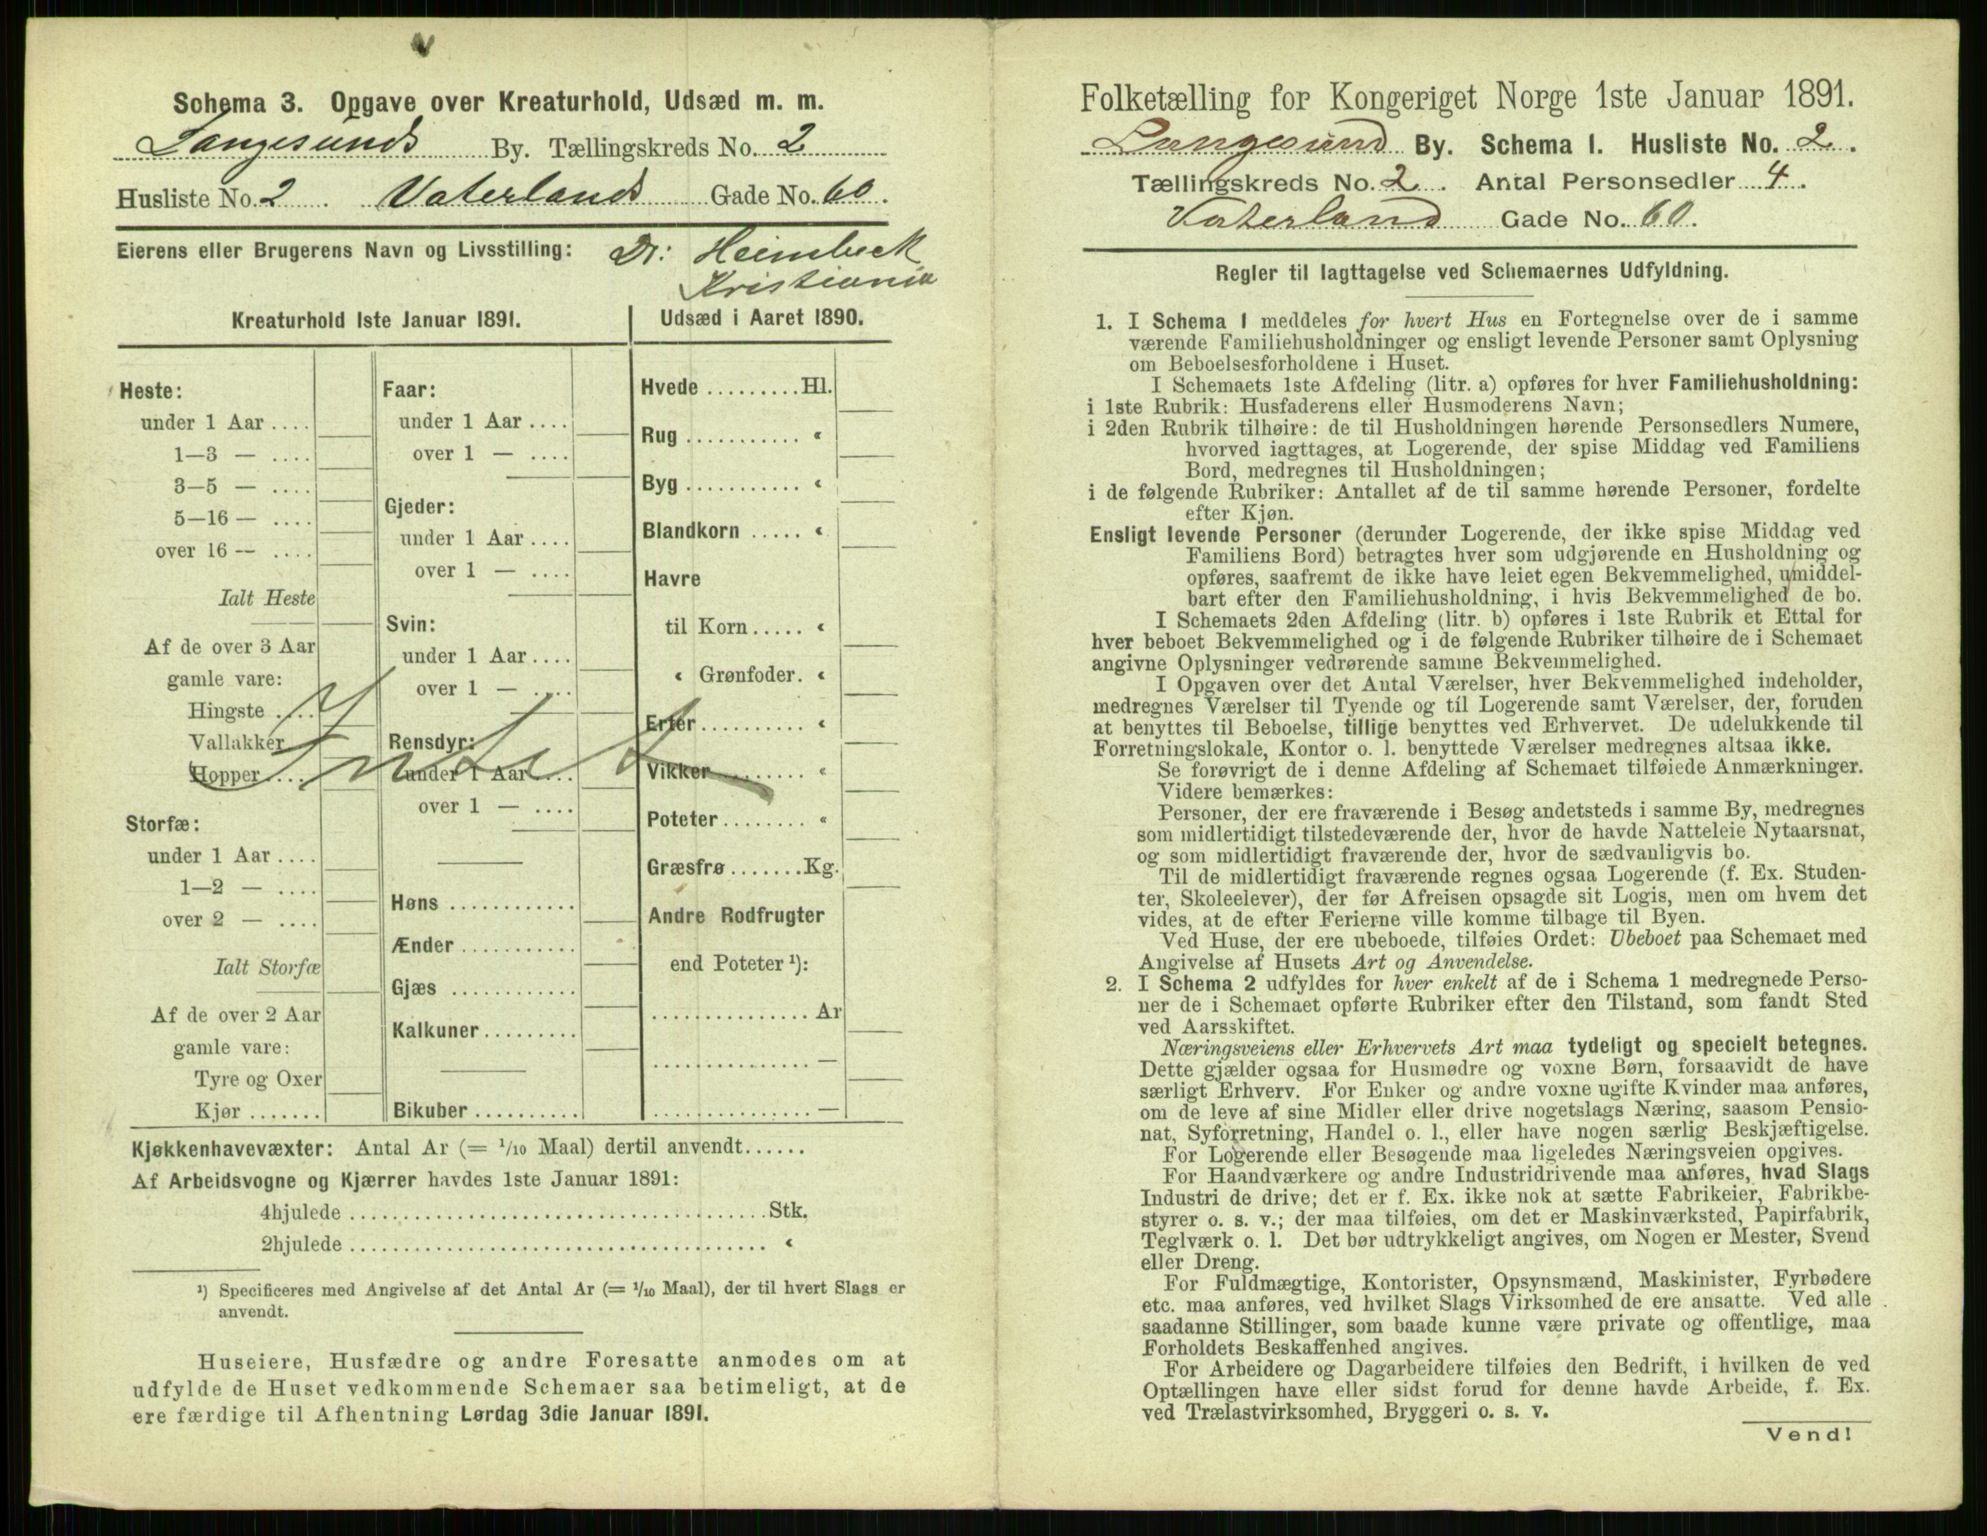 Schema 3. Opgave over Kreaturhold, Udsæd m. m.
Langesunds By. Tællingskreds No. 2
Husliste No. 2 Vaterlands Gade No. 60.
Eierens eller Brugerens Navn og Livsstilling: Dr: Heimbeck
Kristiania
Kreaturhold 1ste Januar 1891.
Heste:
under 1 Aar ....
1—3 — ....
3—5 — ....
5—16 — ....
over 16 — ....
Ialt Heste
Af de over 3 Aar
gamle vare:
Hingste ....
Vallakker
Hopper ....
Storfæ:
under 1 Aar ....
1—2 — ....
over 2 — ....
Ialt Storfæ
Af de over 2 Aar
gamle vare:
Tyre og Oxer
Kjør .......
Faar:
under 1 Aar ....
over 1 — ....
Gjeder:
under 1 Aar ....
over 1 — ....
Svin:
under 1 Aar ....
over 1 — ....
Rensdyr:
under 1 Aar ....
over 1 — ....
Høns ............
Ænder ...........
Gjæs ............
Kalkuner.........
Bikuber ..........
Intet
Udsæd i Aaret 1890.
Hvede .........Hl.
Rug ........... «
Byg ........... «
Blandkorn ..... «
Havre
til Korn..... «
« Grønfoder. «
Erter.......... «
Vikker......... «
Poteter........ «
Græsfrø.......Kg.
Andre Rodfrugter
end Poteter ¹):
............... Ar
............... —
............... —
Kjøkkenhavevæxter: Antal Ar (= 1/10 Maal) dertil anvendt......
Af Arbeidsvogne og Kjærrer havdes 1ste Januar 1891:
4hjulede .......................................Stk.
2hjulede ....................................... «
¹) Specificeres med Angivelse af det Antal Ar (= 1/10 Maal), der til hvert Slags er
anvendt.
Huseiere, Husfædre og andre Foresatte anmodes om at
udfylde de Huset vedkommende Schemaer saa betimeligt, at de
ere færdige til Afhentning Lørdag 3die Januar 1891.
Folketælling for Kongeriget Norge 1ste Januar 1891.
Langesund By. Schema 1. Husliste No. 2.
Tællingskreds No. 2. Antal Personsedler 4.
Vaterland Gade No. 60.
Regler til Iagttagelse ved Schemaernes Udfyldning.
1. I Schema 1 meddeles for hvert Hus en Fortegnelse over de i samme
værende Familiehusholdninger og ensligt levende Personer samt Oplysning
om Beboelsesforholdene i Huset.
I Schemaets 1ste Afdeling (litr. a) opføres for hver Familiehusholdning:
i 1ste Rubrik: Husfaderens eller Husmoderens Navn;
i 2den Rubrik tilhøire: de til Husholdningen hørende Personsedlers Numere,
hvorved iagttages, at Logerende, der spise Middag ved Familiens
Bord, medregnes til Husholdningen;
i de følgende Rubriker: Antallet af de til samme hørende Personer, fordelte
efter Kjøn.
Ensligt levende Personer (derunder Logerende, der ikke spise Middag ved
Familiens Bord) betragtes hver som udgjørende en Husholdning og
opføres, saafremt de ikke have leiet egen Bekvemmelighed, umiddel-
bart efter den Familiehusholdning, i hvis Bekvemmelighed de bo.
I Schemaets 2den Afdeling (litr. b) opføres i 1ste Rubrik et Ettal for
hver beboet Bekvemmelighed og i de følgende Rubriker tilhøire de i Schemaet
angivne Oplysninger vedrørende samme Bekvemmelighed.
I Opgaven over det Antal Værelser, hver Bekvemmelighed indeholder,
medregnes Værelser til Tyende og til Logerende samt Værelser, der, foruden
at benyttes til Beboelse, tillige benyttes ved Erhvervet. De udelukkende til
Forretningslokale, Kontor o. l. benyttede Værelser medregnes altsaa ikke.
Se forøvrigt de i denne Afdeling af Schemaet tilføiede Anmærkninger.
Videre bemærkes:
Personer, der ere fraværende i Besøg andetsteds i samme By, medregnes
som midlertidigt tilstedeværende der, hvor de havde Natteleie Nytaarsnat,
og som midlertidigt fraværende der, hvor de sædvanligvis bo.
Til de midlertidigt fraværende regnes ogsaa Logerende (f. Ex. Studen-
ter, Skoleelever), der før Afreisen opsagde sit Logis, men om hvem det
vides, at de efter Ferierne ville komme tilbage til Byen.
Ved Huse, der ere ubeboede, tilføies Ordet: Ubeboet paa Schemaet med
Angivelse af Husets Art og Anvendelse.
2. I Schema 2 udfyldes for hver enkelt af de i Schema 1 medregnede Perso-
ner de i Schemaet opførte Rubriker efter den Tilstand, som fandt Sted
ved Aarsskiftet.
Næringsveiens eller Erhvervets Art maa tydeligt og specielt betegnes.
Dette gjælder ogsaa for Husmødre og voxne Børn, forsaavidt de have
særligt Erhverv. For Enker og andre voxne ugifte Kvinder maa anføres,
om de leve af sine Midler eller drive nogetslags Næring, saasom Pensio-
nat, Syforretning, Handel o. l., eller have nogen særlig Beskjæftigelse.
For Logerende eller Besøgende maa ligeledes Næringsveien opgives.
For Haandværkere og andre Industridrivende maa anføres, hvad Slags
Industri de drive; det er f. Ex. ikke nok at sætte Fabrikeier, Fabrikbe-
styrer o. s. v.; der maa tilføies, om det er Maskinværksted, Papirfabrik,
Teglværk o. l. Det bør udtrykkeligt angives, om Nogen er Mester, Svend
eller Dreng.
For Fuldmægtige, Kontorister, Opsynsmænd, Maskinister, Fyrbødere
etc. maa anføres, ved hvilket Slags Virksomhed de ere ansatte. Ved alle
saadanne Stillinger, som baade kunne være private og offentlige, maa
Forholdets Beskaffenhed angives.
For Arbeidere og Dagarbeidere tilføies den Bedrift, i hvilken de ved
Optællingen have eller sidst forud for denne havde Arbeide, f. Ex.
ved Trælastvirksomhed, Bryggeri o. s. v.
Vend!